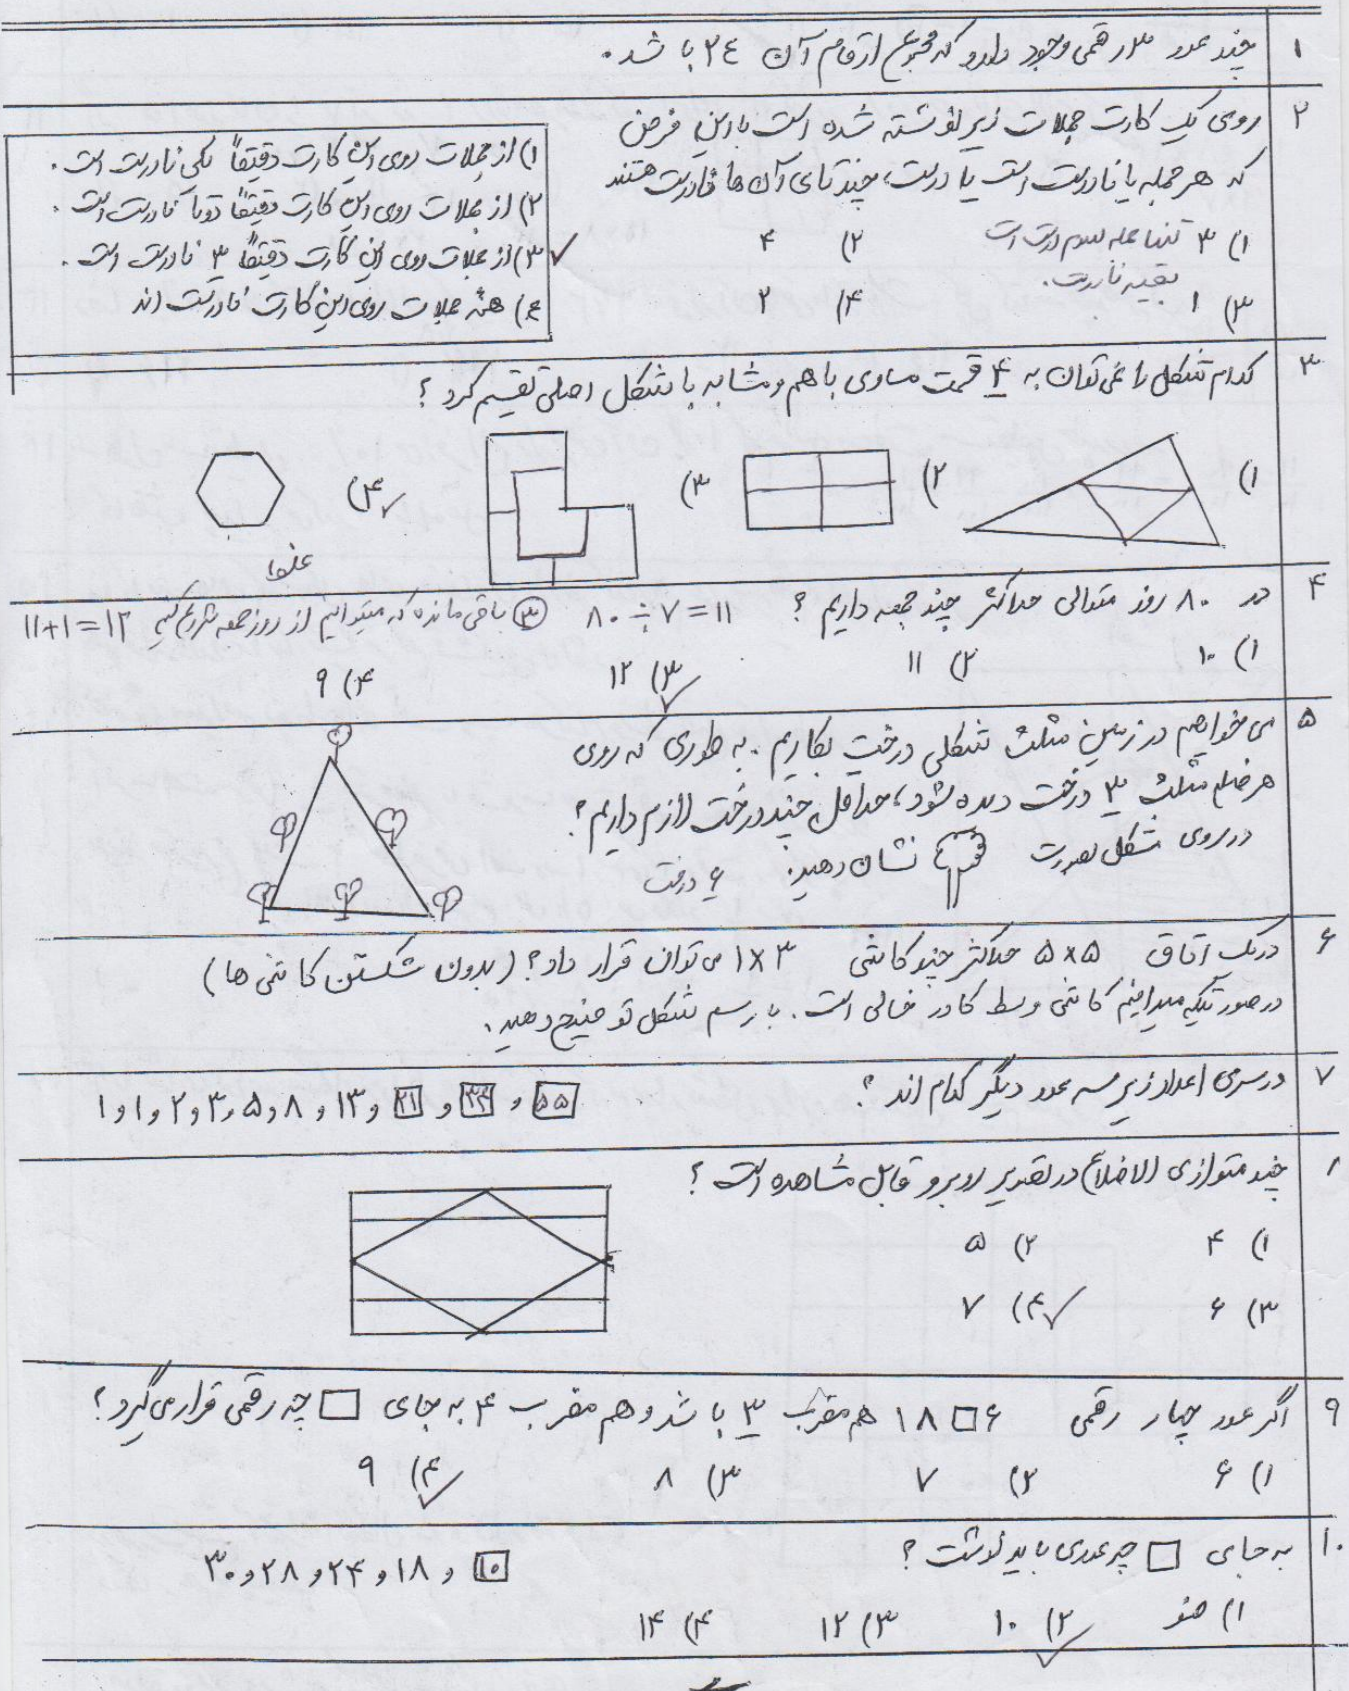 ۱ چند عدد ۳ رقمی وجود دارد که مجموع ارقام آن ۲٤ باشد.
۲ روی یک کارت جملات زیر نوشته شده است با این فرض
که هر جمله یا نادرست است یا درست، چند تای آن ها نادرست هستند
۱) ۳ تنها جمله سوم درست است بقیه نادرست.
۲) ۴
۳) ۱
۴) ۲
۱) از جملات روی این کارت دقیقاً یکی نادرست است.
۲) از جملات روی این کارت دقیقاً دوتا نادرست است.
۳) از جملات روی این کارت دقیقاً ۳ نادرست است. ✓
٤) همه جملات روی این کارت نادرست اند
۳ کدام شکل را نمی توان به ۴ قسمت مساوی با هم و مشابه با شکل اصلی تقسیم کرد؟
۱) ۲) ۳) ۴) ✓
۴ در ۸۰ روز متوالی حداکثر چند جمعه داریم؟ ۸۰ ÷ ۷ = ۱۱ ③ باقی مانده که میتوانیم از روز جمعه شروع کنیم ۱۱+۱=۱۲
۱) ۱۰ ۲) ۱۱ ۳) ۱۲ ✓ ۴) ۹
۵ می خواهیم در زمین مثلث شکلی درخت بکاریم. به طوری که روی
هر ضلع مثلث ۳ درخت دیده شود، حداقل چند درخت لازم داریم؟
در روی شکل بصورت نشان دهید. ۶ درخت
۶ در یک اتاق ۵×۵ حداکثر چند کاشی ۱×۳ می توان قرار داد؟ (بدون شکستن کاشی ها)
در صورتیکه میدانیم کاشی وسط کادر خالی است. با رسم شکل توضیح دهید.
۷ در سری اعداد زیر سه عدد دیگر کدام اند؟ ۱ و ۱ و ۲ و ۳ و ۵ و ۸ و ۱۳ و ۲۱ و ۳۴ و ۵۵
۸ چند متوازی الاضلاع در تصویر روبرو قابل مشاهده است؟
۱) ۴ ۲) ۵
۳) ۶ ۴) ۷ ✓
۹ اگر عدد چهار رقمی ۱۸□۶ هم مضرب ۳ باشد و هم مضرب ۴ به جای □ چه رقمی قرار می گیرد؟
۱) ۶ ۲) ۷ ۳) ۸ ۴) ۹ ✓
۱۰ به جای □ چه عددی باید نوشت؟ ۳۰ و ۲۸ و ۲۴ و ۱۸ و ۱۰
۱) صفر ۲) ۱۰ ✓ ۳) ۱۲ ۴) ۱۴